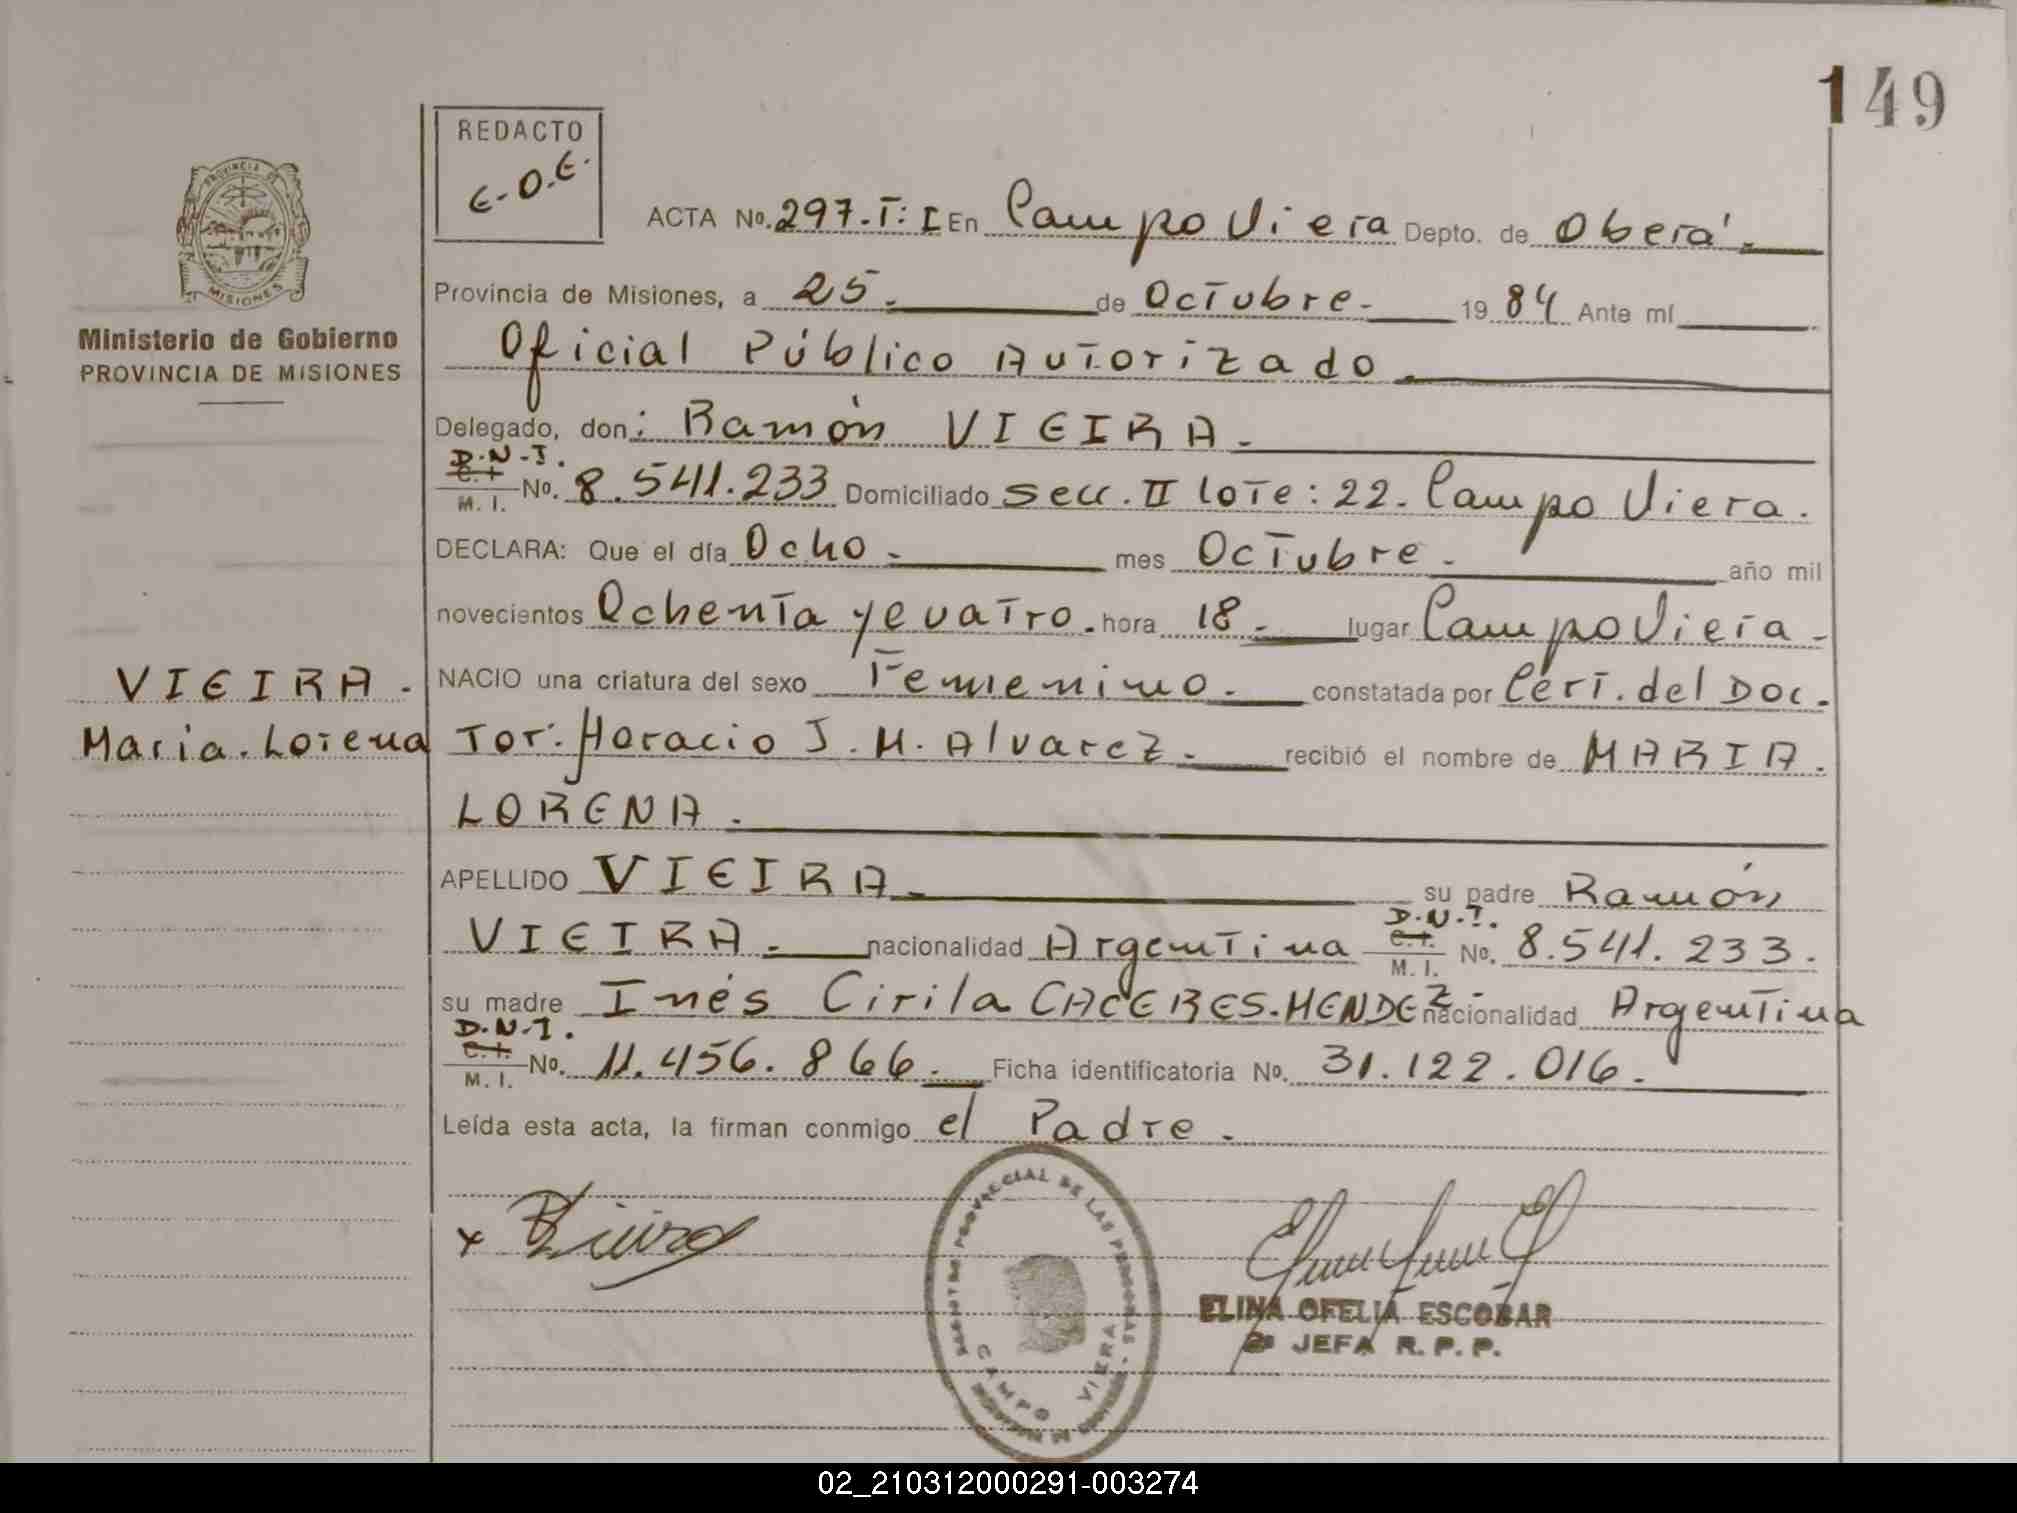 149
REDACTO
E.O.E.
PROVINCIA DE
MISIONES
Ministerio de Gobierno
PROVINCIA DE MISIONES
ACTA No. 297.T: I En Campo Viera Depto. de Oberá.
Provincia de Misiones, a 25. de Octubre. 19 84 Ante mí
Oficial Público Autorizado.
Delegado, don: Ramón VIEIRA.
D.N.I.
C.I. No. 8.541.233 Domiciliado secc. II lote: 22. Campo Viera.
M. I.
DECLARA: Que el día Ocho. mes Octubre. año mil
novecientos Ochenta y cuatro. hora 18. lugar Campo Viera.
VIEIRA. NACIO una criatura del sexo Femenino. constatada por Cert. del Doc.
Maria. Lorena Tor: Horacio J. M. Alvarez. recibió el nombre de MARIA.
LORENA.
APELLIDO VIEIRA. su padre Ramón
D.N.I.
VIEIRA. nacionalidad Argentina C.I. No. 8.541.233.
M. I.
su madre Inés Cirila CACERES.MENDEZ. nacionalidad Argentina
D.N.I.
C.I. No. 11.456.866. Ficha identificatoria No. 31.122.016.
M. I.
Leída esta acta, la firman conmigo el Padre.
x
PROVINCIAL DE LAS PERSONAS
CAMPO VIERA
ELINA OFELIA ESCOBAR
JEFA R. P. P.
02_210312000291-003274